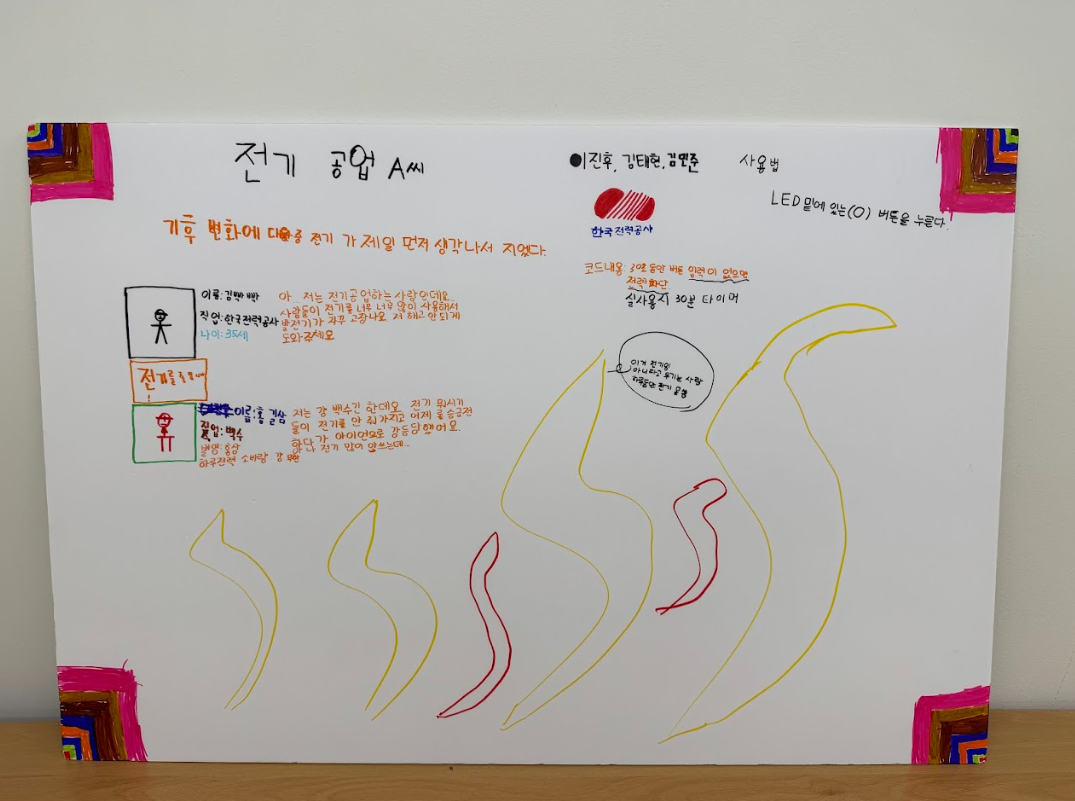 전기 공업 A씨
●이진후, 김태현, 김민준
사용법
LED 밑에 있는(O) 버튼을 누른다.
한국전력공사
기후 변화에 전기 가 제일 먼저 생각나서 지었다.
코드내용: 30초 동안 버튼 입력이 없으면
전력 차단
실사용시 30분 타이머
이름: 김빠빠빡
직업: 한국전력공사
나이: 35세
아.. 저는 전기공업하는 사람인데요..
사람들이 전기를 너무 너무 많이 사용해서
발전기가 자꾸 고장나요 저 해고 안되게
도와주세요
전기를
이름: 홍길삼
직업: 백수
별명: 홍삼
하루전력 소비량
저는 걍 백수긴 한데요 전기 뭐시기
들이 전기를 안 줘가지고 어제 롤 승급전
하다가 아이언으로 강등당했어요.
전기 많이 안쓰는데..
이거 전기
아니라고 우기는 사람